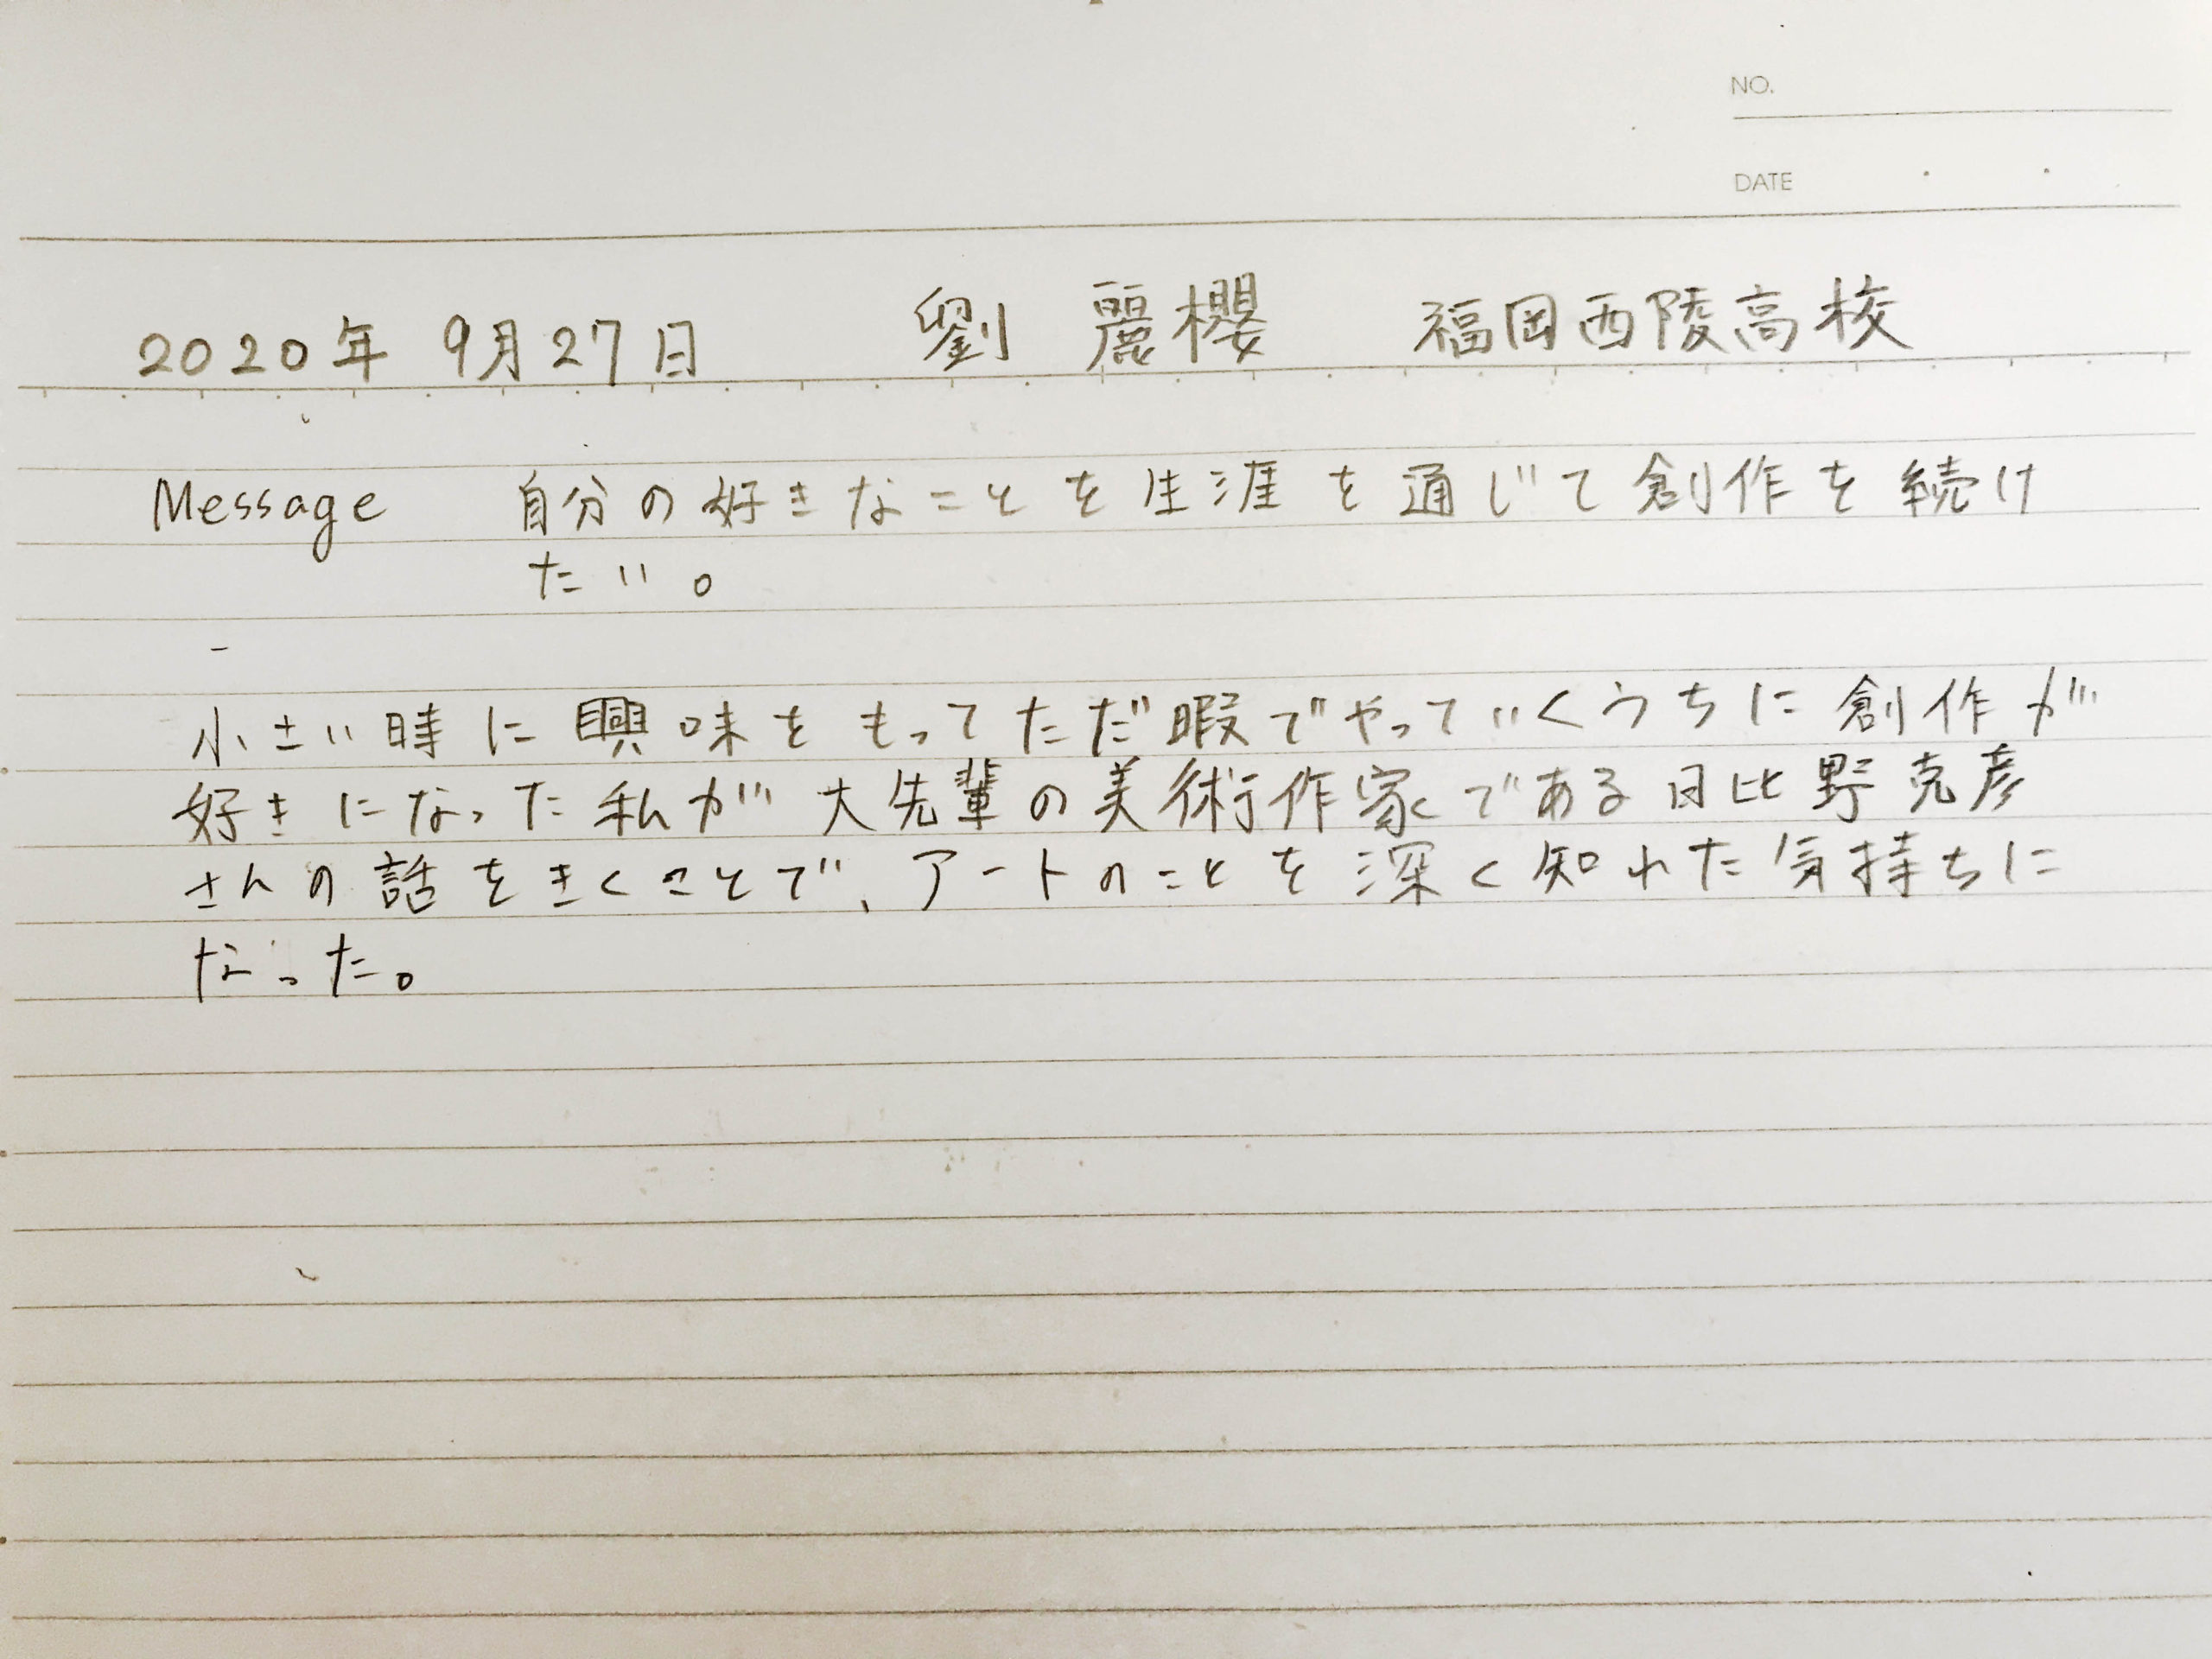 NO.
DATE
2020年 9月27日 劉 麗櫻 福岡西陵高校
Message 自分の好きなことを生涯を通じて創作を続け
たい。
小さい時に興味をもってただ暇でやっていくうちに創作が
好きになった私が大先輩の美術作家である日比野克彦
さんの話をきくことで、アートのことを深く知れた気持ちに
なった。